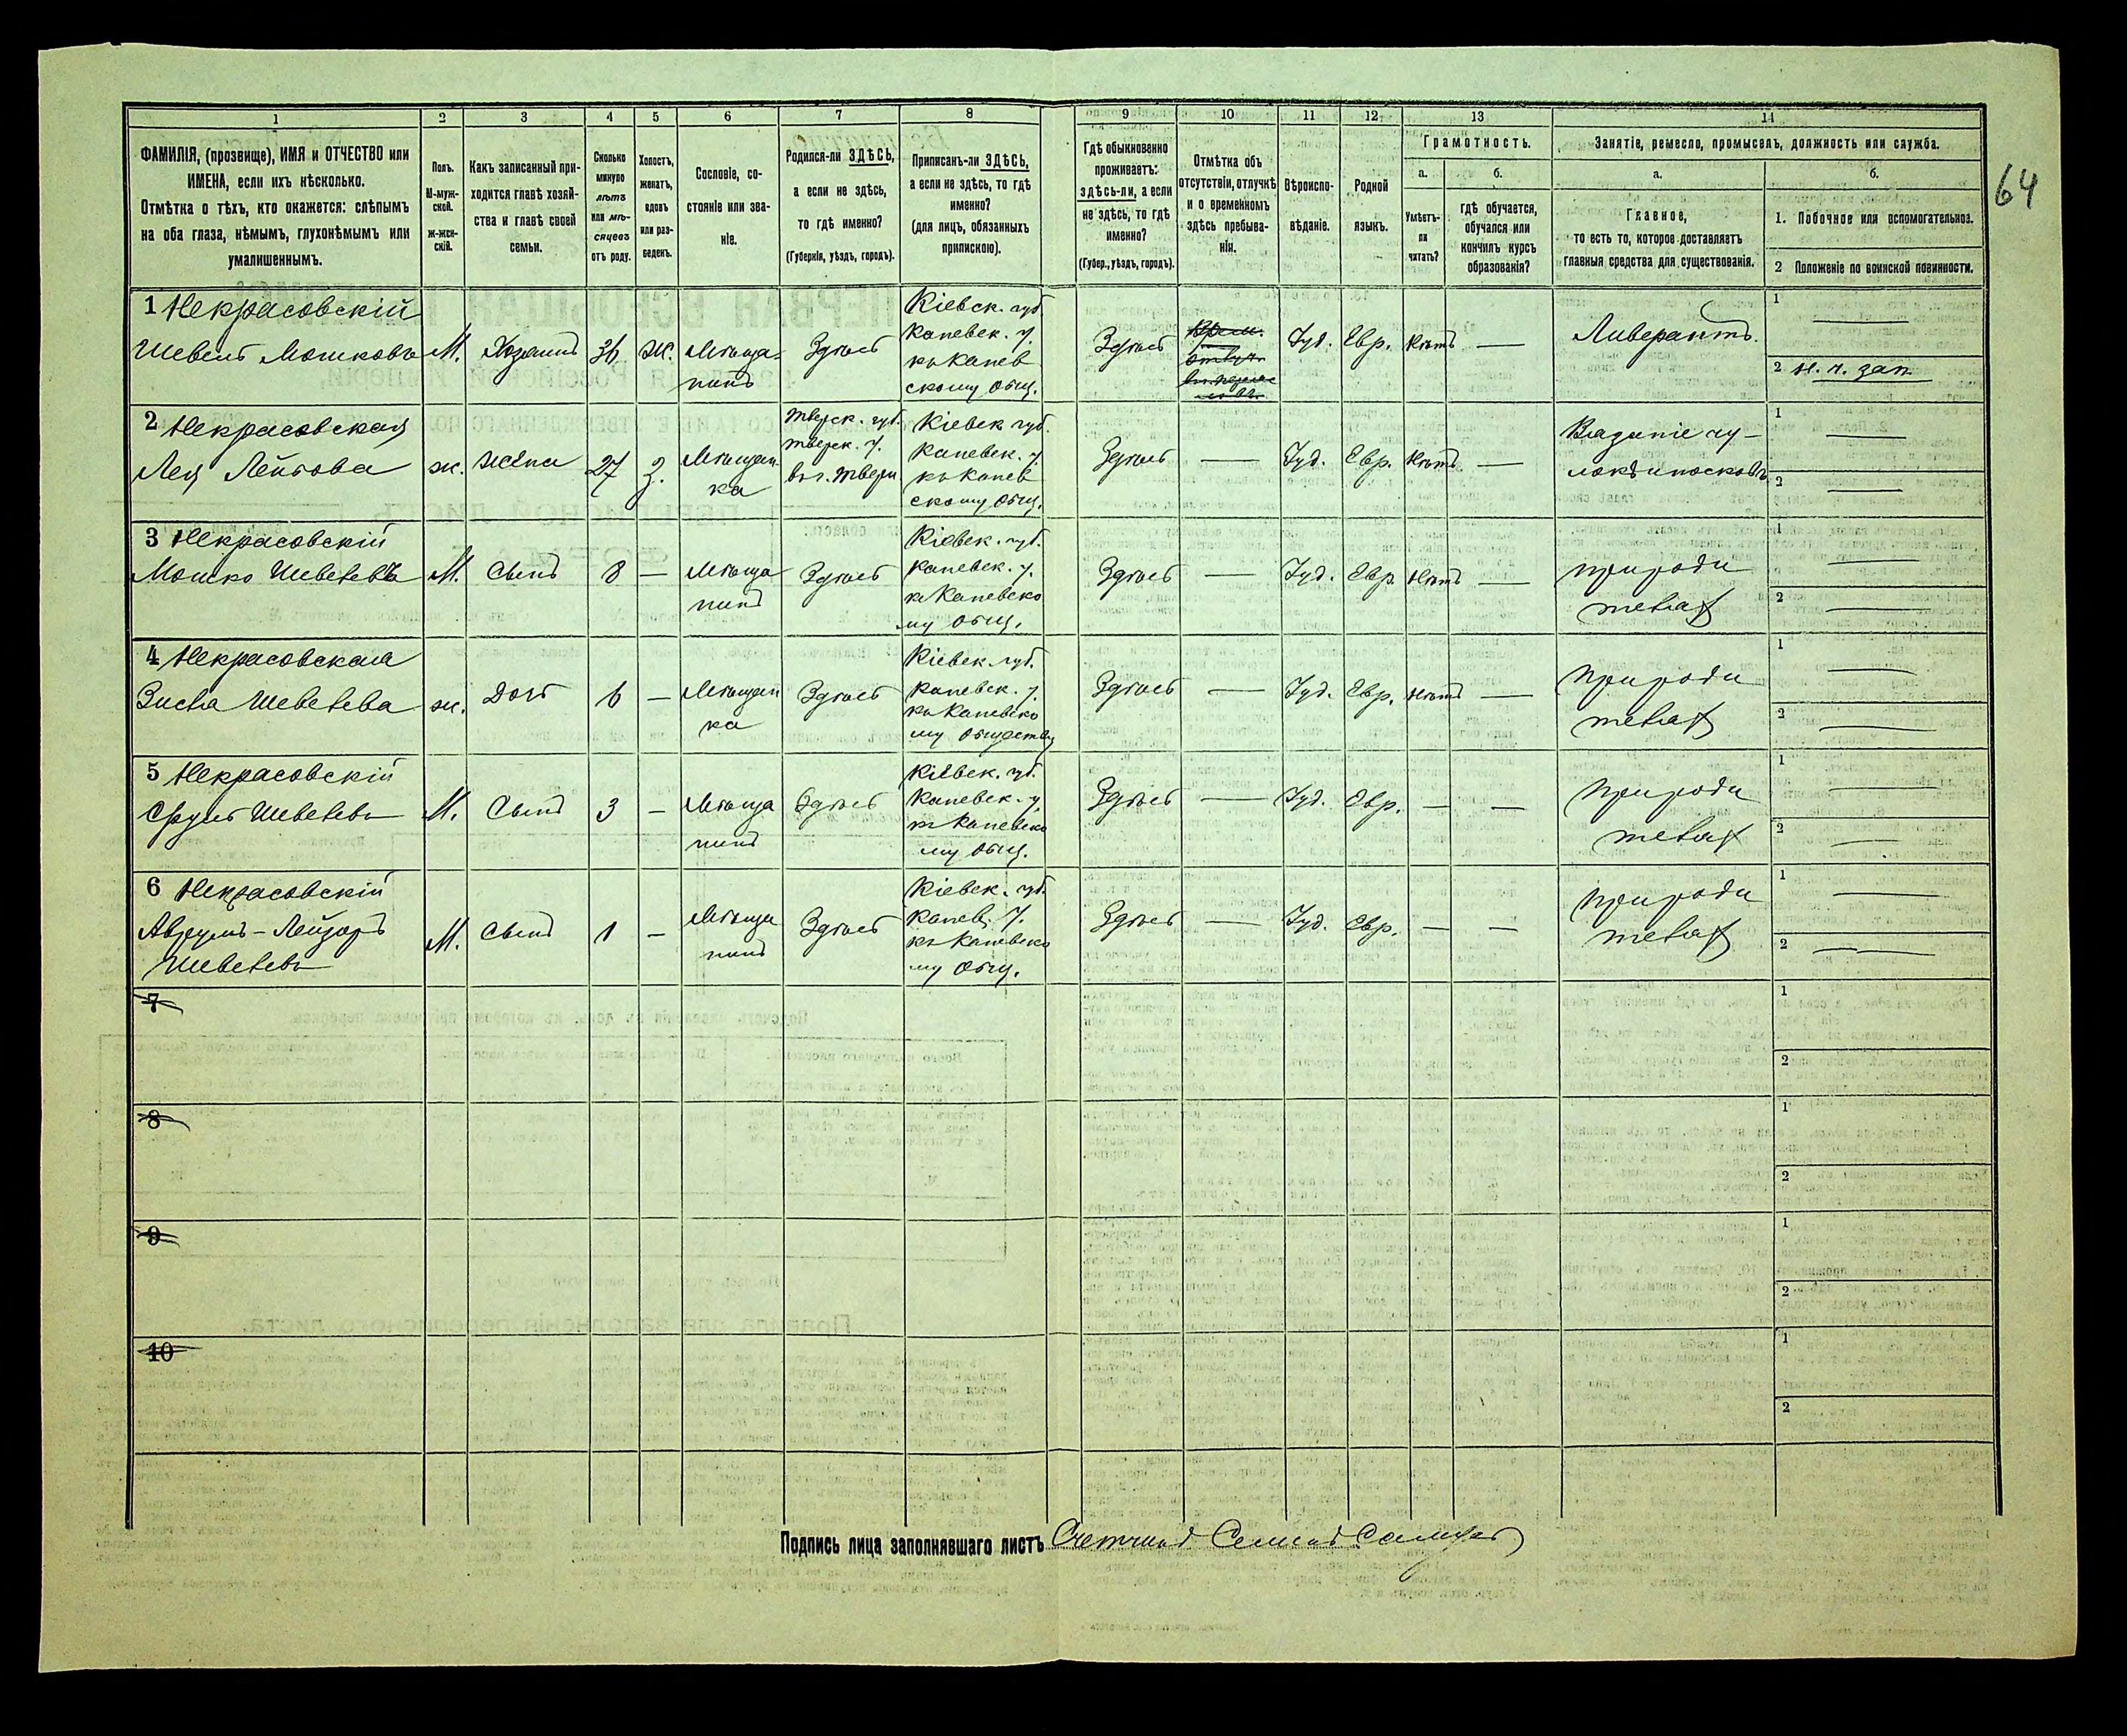 64
1 2 3 4 5 6 7 8 9 10 11 12 13 14
ФАМИЛІЯ, (прозвище), ИМЯ и ОТЧЕСТВО или
ИМЕНА, если ихъ нѣсколько.
Отмѣтка о тѣхъ, кто окажется: слѣпымъ
на оба глаза, нѣмымъ, глухонѣмымъ или
умалишеннымъ.
Полъ.
М-муж-
ской.
Ж-жен-
скій.
Какъ записанный при-
ходится главѣ хозяй-
ства и главѣ своей
семьи.
Сколько
минуло
лѣтъ
или мѣ-
сяцевъ
отъ роду.
Холостъ,
женатъ,
вдовъ
или раз-
веденъ.
Сословіе, со-
стояніе или зва-
ніе.
Родился-ли ЗДѢСЬ,
а если не здѣсь,
то гдѣ именно?
(Губернія, уѣздъ, городъ).
Приписанъ-ли ЗДѢСЬ,
а если не здѣсь, то гдѣ
именно?
(для лицъ, обязанныхъ
припискою).
Гдѣ обыкновенно
проживаетъ:
здѣсь-ли, а если
не здѣсь, то гдѣ
именно?
(Губер., уѣздъ, городъ).
Отмѣтка объ
отсутствіи, отлучкѣ
и о временномъ
здѣсь пребыва-
ніи.
Вѣроиспо-
вѣданіе.
Родной
языкъ.
Грамотность.
а.
Умѣетъ-
ли
читать?
б.
гдѣ обучается,
обучался или
кончилъ курсъ
образованія?
Занятіе, ремесло, промыселъ, должность или служба.
а.
Главное,
то есть то, которое доставляетъ
главныя средства для существованія.
б.
1. Побочное или вспомогательное.
2 Положеніе по воинской повинности.
1 Некрасовскій
Шевель Мошковъ
М.
Хозяинъ
36
Ж.
Мѣща-
нинъ
Здѣсь
Кіевск. губ.
Каневск. у.
къ Канев
скому общ.
Здѣсь
Іуд.
Евр.
Нѣтъ
—
Ливерантъ.
1 —
2 н. ч. зап.
2 Некрасовская
Лея Лейбова
ж.
Жена
27
З.
Мѣщан
ка
Тверск. губ.
Тверск. у.
въ г. Твери
Кіевск губ.
Каневск. у
къ Канев
скому общ.
Здѣсь
—
Іуд.
Евр.
Нѣтъ
—
Вязаніе чу-
локъ и носковъ
1 —
2 —
3 Некрасовскій
Мошко Шевелевъ
М.
Сынъ
8
—
Мѣща
нинъ
Здѣсь
Кіевск. губ.
Каневск. у.
къ Каневско
му общ.
Здѣсь
—
Іуд.
Евр.
Нѣтъ
—
при роди
теляхъ
1 —
2 —
4 Некрасовская
Зисла Шевелева
ж.
Дочь
6
—
Мѣщан
ка
Здѣсь
Кіевск. губ.
Каневск. у.
къ Каневско
му обществу
Здѣсь
—
Іуд.
Евр.
Нѣтъ
—
При роди
теляхъ
1 —
2 —
5 Некрасовскій
Сруль Шевелевъ
М.
Сынъ
3
—
Мѣща
нинъ
Здѣсь
Кіевск. губ.
Каневск. у.
къ Каневско
му общ.
Здѣсь
—
Іуд.
Евр.
—
—
При роди
теляхъ
1 —
2 —
6 Некрасовскій
Аврумъ-Лейзоръ
Шевелевъ
М.
Сынъ
1
—
Мѣща
нинъ
Здѣсь
Кіевск. губ.
Канев. у.
къ Каневско
му общ.
Здѣсь
—
Іуд.
Евр.
—
—
При роди
теляхъ
1 —
2 —
7
1
2
8
1
2
9
1
2
10
1
2
Подпись лица заполнявшаго листъ Счетчикъ